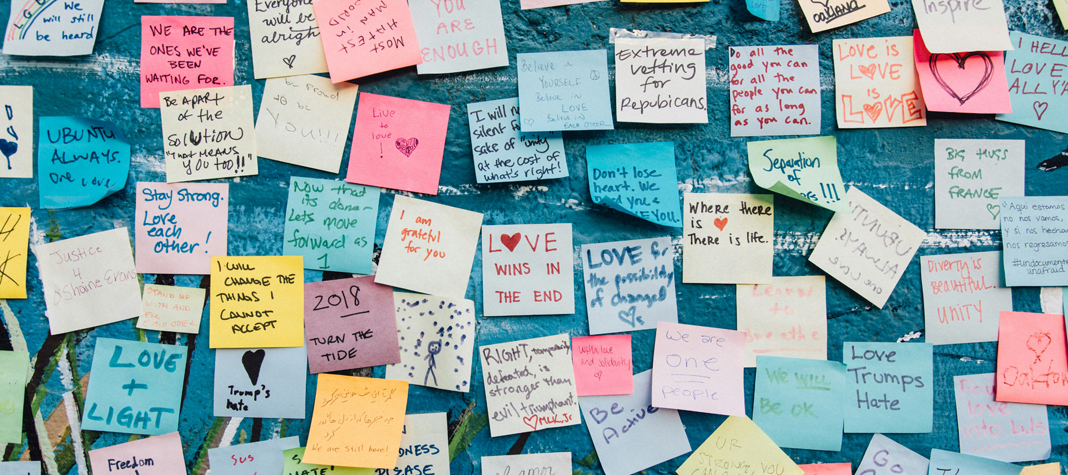 we
will still
be heard
WE ARE THE
ONES WE'VE
BEEN
WAITING FOR.
Everyone
will be
alright
MOST
HATEST
MAN IN
YOU
ARE
ENOUGH
Believe in
YOURSELF
Believe in
LOVE
Believe in
EACH OTHER
Extreme
vetting
for
Repubicans.
Do all the
good you can
for all the
people you can
for as long
as you can.
LOVE is
LOVE
is
LOVE
Inspire
HELLO
LOVE
ALL Y'A
UBUNTU
ALWAYS.
One Love.
Be APART
of the
SOLUTION
YOU TOO!!"
be proud
to be
You!!!
Live
to
love
!
I will no
silent for
sake of "unity"
at the cost of
what's right!
Don't lose
heart. We
and
YOU!
Separation
of
!!!
BIG HUGS
FROM
FRANCE
Stay Strong.
Love
each
other!
Now that
its done-
Lets move
forward as
1
I am
grateful
for you
LOVE
WINS IN
THE END
LOVE &
the possibility
of changed
Where there
is
There is life.
UBUNTU
ALWAYS
one love
"Aquí estamos
no nos vamos,
y si nos hechan
nos regresamos
#undocumented
unafraid
Justice
4
STAND UP AND
I WILL
CHANGE THE
THINGS I
CANNOT
ACCEPT
2018
TURN THE
TIDE
Learn
to
Breathe
Diverty is
Beautiful.
UNITY
LOVE
+
LIGHT
Trump's
hate
We are Still here!
RIGHT, temporarily
defeated, is
stronger than
evil triumphant.
MLK, Jr
with love
and solidarity
Be
Active
We are
ONE
people
We WILL
Be OK
Love
Trumps
Hate
Oakland
Love
Freedom
SUS
DISEASE
UR
STRONG, YOU
GO